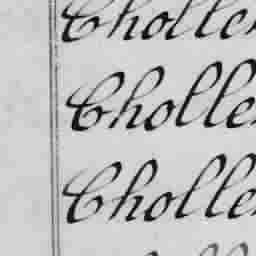 Choller
Choller
Choller